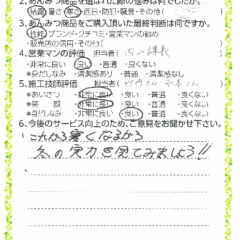 2.あんみつ商品を選ばれた際の悩みは何でしたか。
・結露・暑さ・寒さ・西日・防災・騒音・その他(
3.あんみつ商品をご購入頂いた最終判断は何ですか。
・性能・ブランド・クチコミ・営業マンの勧め
・販売店の信用・その他(
4.営業マンの評価 担当者(
*非常に良い ・良い ・普通 ・良くない
*身だしなみ ・清潔感あり ・普通 ・清潔感なし
5.施工技師評価 担当者(
*あいさつ ・非常に良い ・良い ・普通 ・良くない
*笑 顔 ・非常に良い ・良い ・普通 ・良くない
*身だしなみ ・非常に良い ・良い ・普通 ・良くない
6.今後のサービス向上のため、ご意見をお聞かせ下さい。
これから寒くなるから
冬の実力を見てみましょう!!